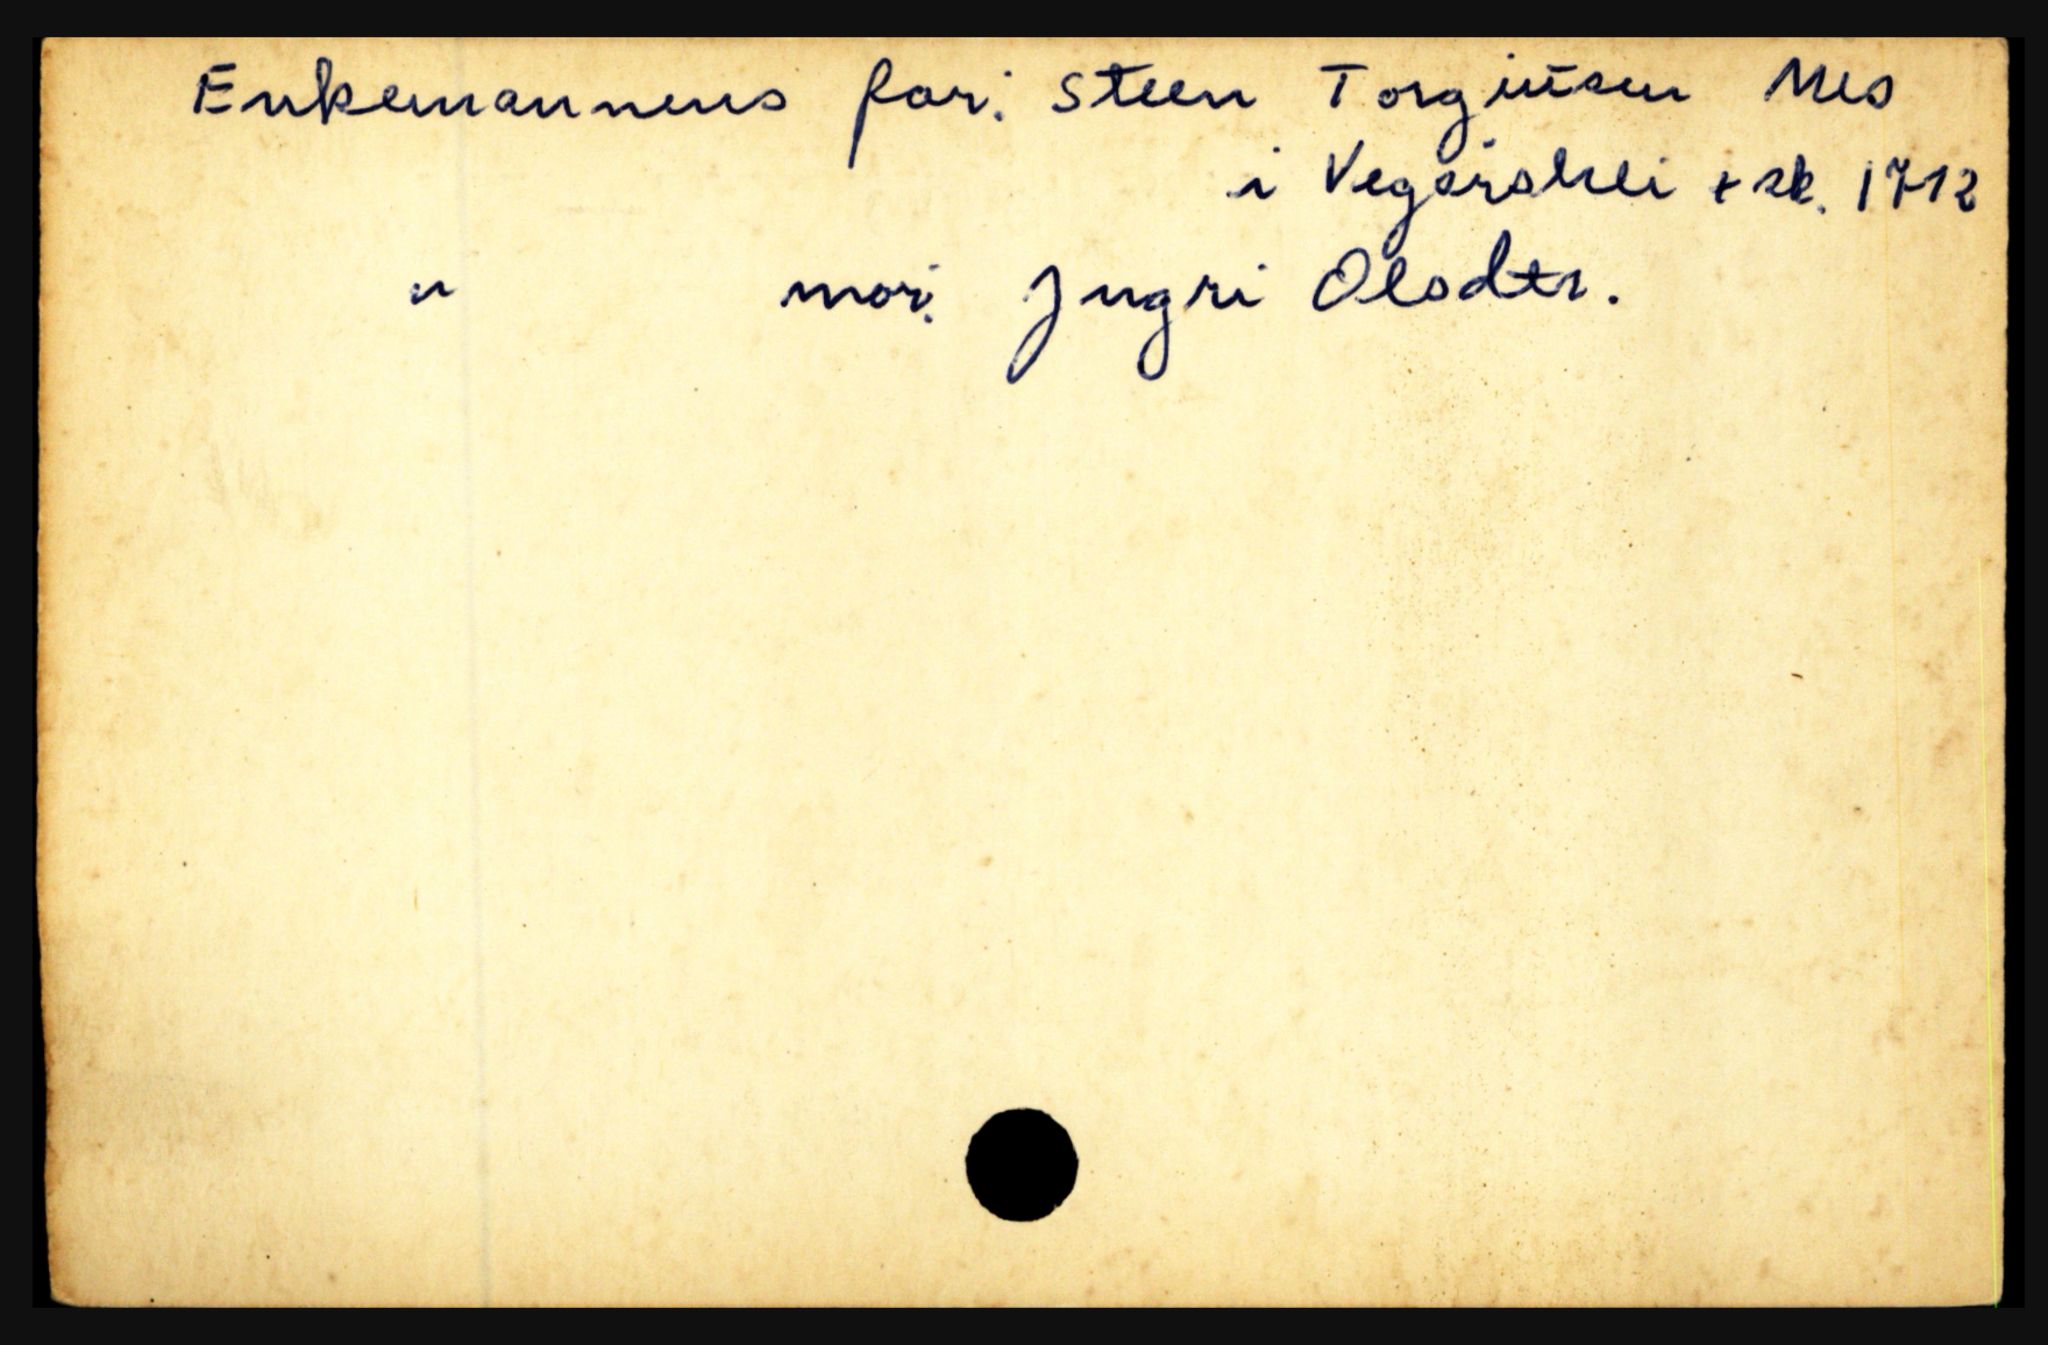 Enkemannens far: Steen Torgiusen Nes
i Vegårshei + sk. 1712
" mor: Jngri Olsdtr.